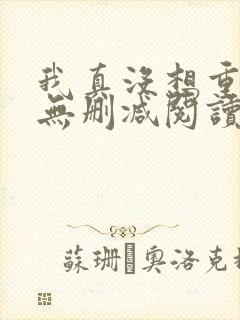 我真沒想重
無刪减閱讀
蘇珊 奧洛克